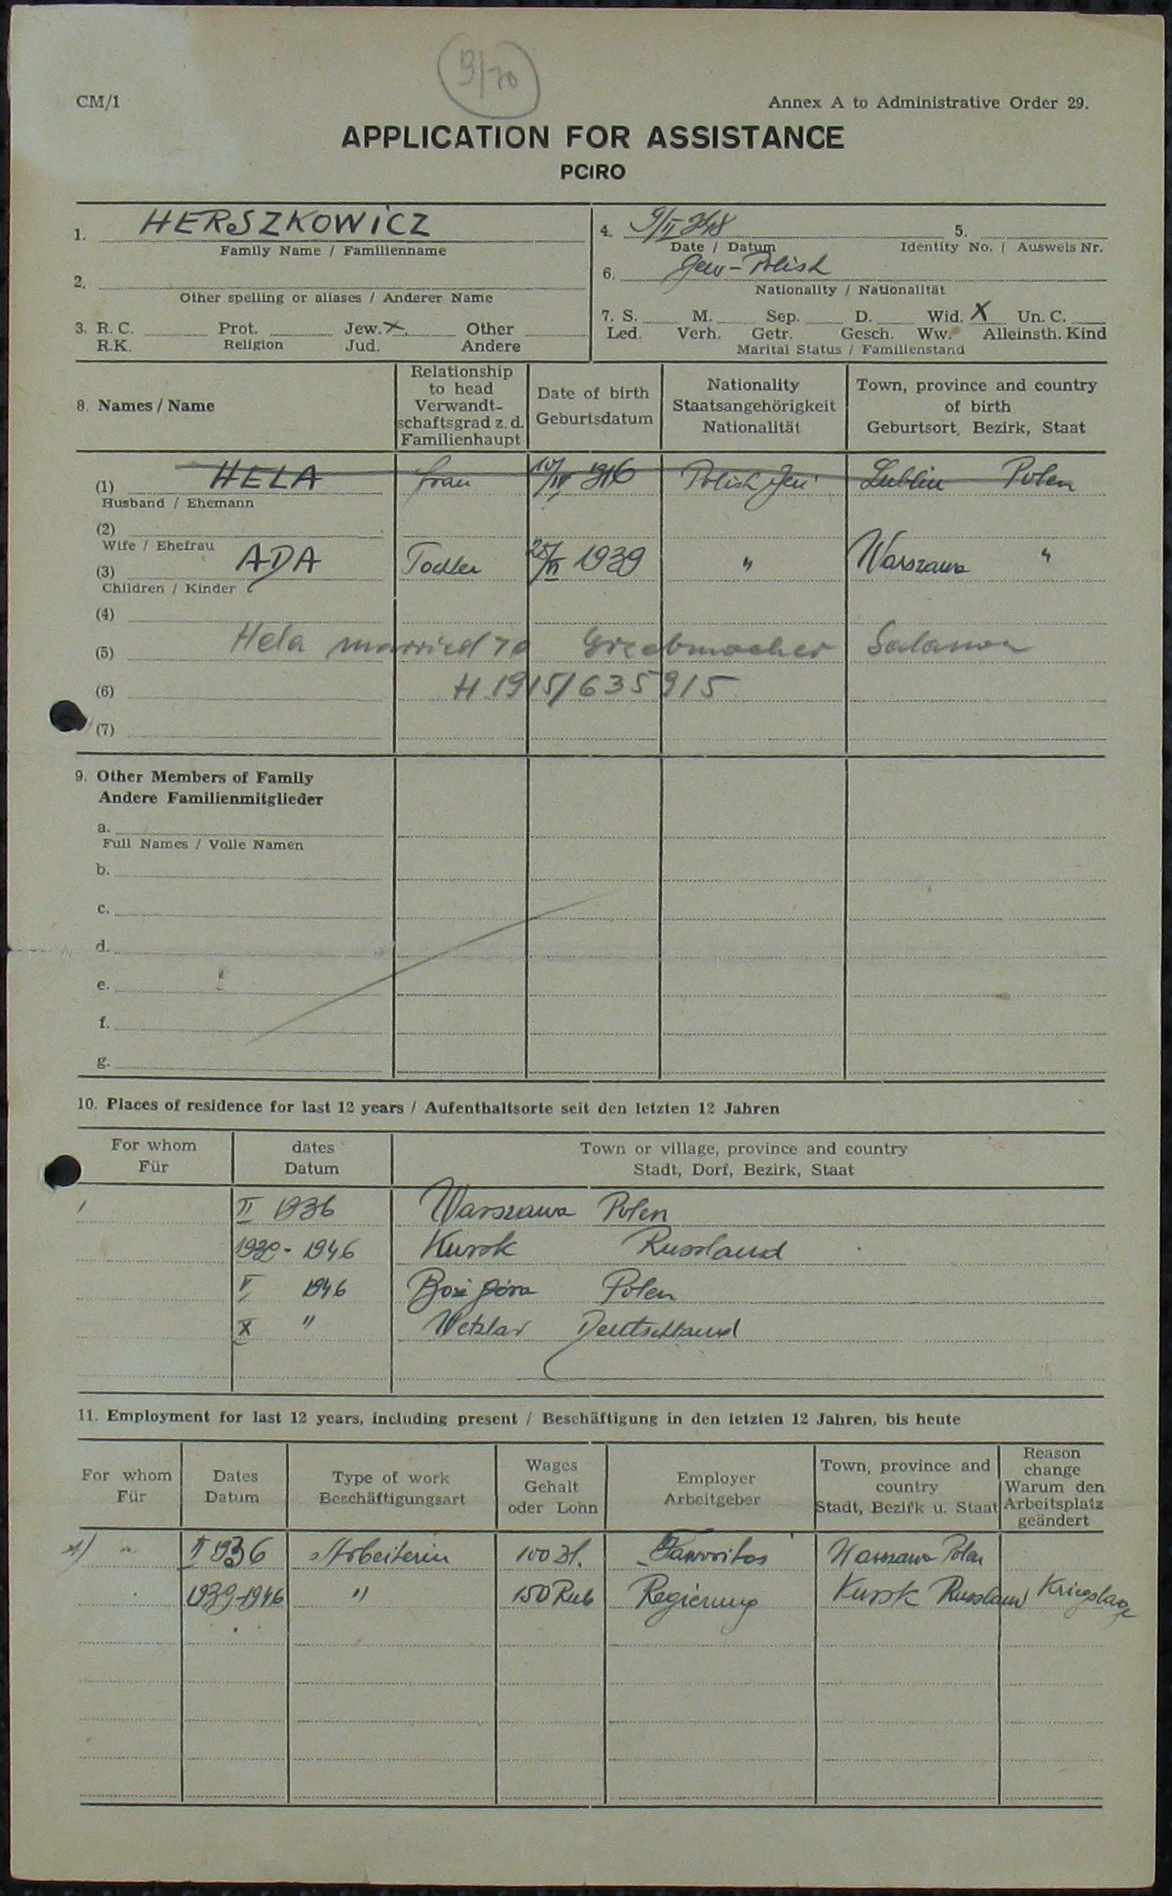 9/70
CM/1 Annex A to Administrative Order 29.
APPLICATION FOR ASSISTANCE
PCIRO
1. HERSZKOWICZ
Family Name / Familienname
4. 9/II 48 5.
Date / Datum Identity No. / Ausweis Nr.
2.
Other spelling or aliases / Anderer Name
6. Jew-Polish
Nationality / Nationalität
3. R. C. Prot. Jew. x Other
R.K. Religion Jud. Andere
7. S. M. Sep. D. Wid. X Un. C.
Led. Verh. Getr. Gesch. Ww. Alleinsth. Kind
Marital Status / Familienstand
8. Names / Name
Relationship to head Verwandt-schaftsgrad z. d. Familienhaupt
Date of birth Geburtsdatum
Nationality Staatsangehörigkeit Nationalität
Town, province and country of birth Geburtsort, Bezirk, Staat
(1) HELA frau 10/IV 1916 Polish Lublin Polen
Husband / Ehemann
(2)
Wife / Ehefrau
(3) ADA 1939 " Warszawa "
Children / Kinder
(4)
(5) Hela married to Salamon
(6) H 1915/635915
(7)
9. Other Members of Family
Andere Familienmitglieder
a.
Full Names / Volle Namen
b.
c.
d.
e.
f.
g.
10. Places of residence for last 12 years / Aufenthaltsorte seit den letzten 12 Jahren
For whom Für
dates Datum
Town or village, province and country
Stadt, Dorf, Bezirk, Staat
II 1936 Warszawa Polen
1939 - 1946 Kursk Russland
V 1946 Polen
X " Wetzlar Deutschland
11. Employment for last 12 years, including present / Beschäftigung in den letzten 12 Jahren, bis heute
For whom Für
Dates Datum
Type of work Beschäftigungsart
Wages Gehalt oder Lohn
Employer Arbeitgeber
Town, province and country Stadt, Bezirk u. Staat
Reason change Warum den Arbeitsplatz geändert
1) " II 1936 Arbeiterin 100 Zl. "Faworitas" Warszawa Polen
1939-1946 " 150 Rub Regierung Kursk Russland Kriegslage